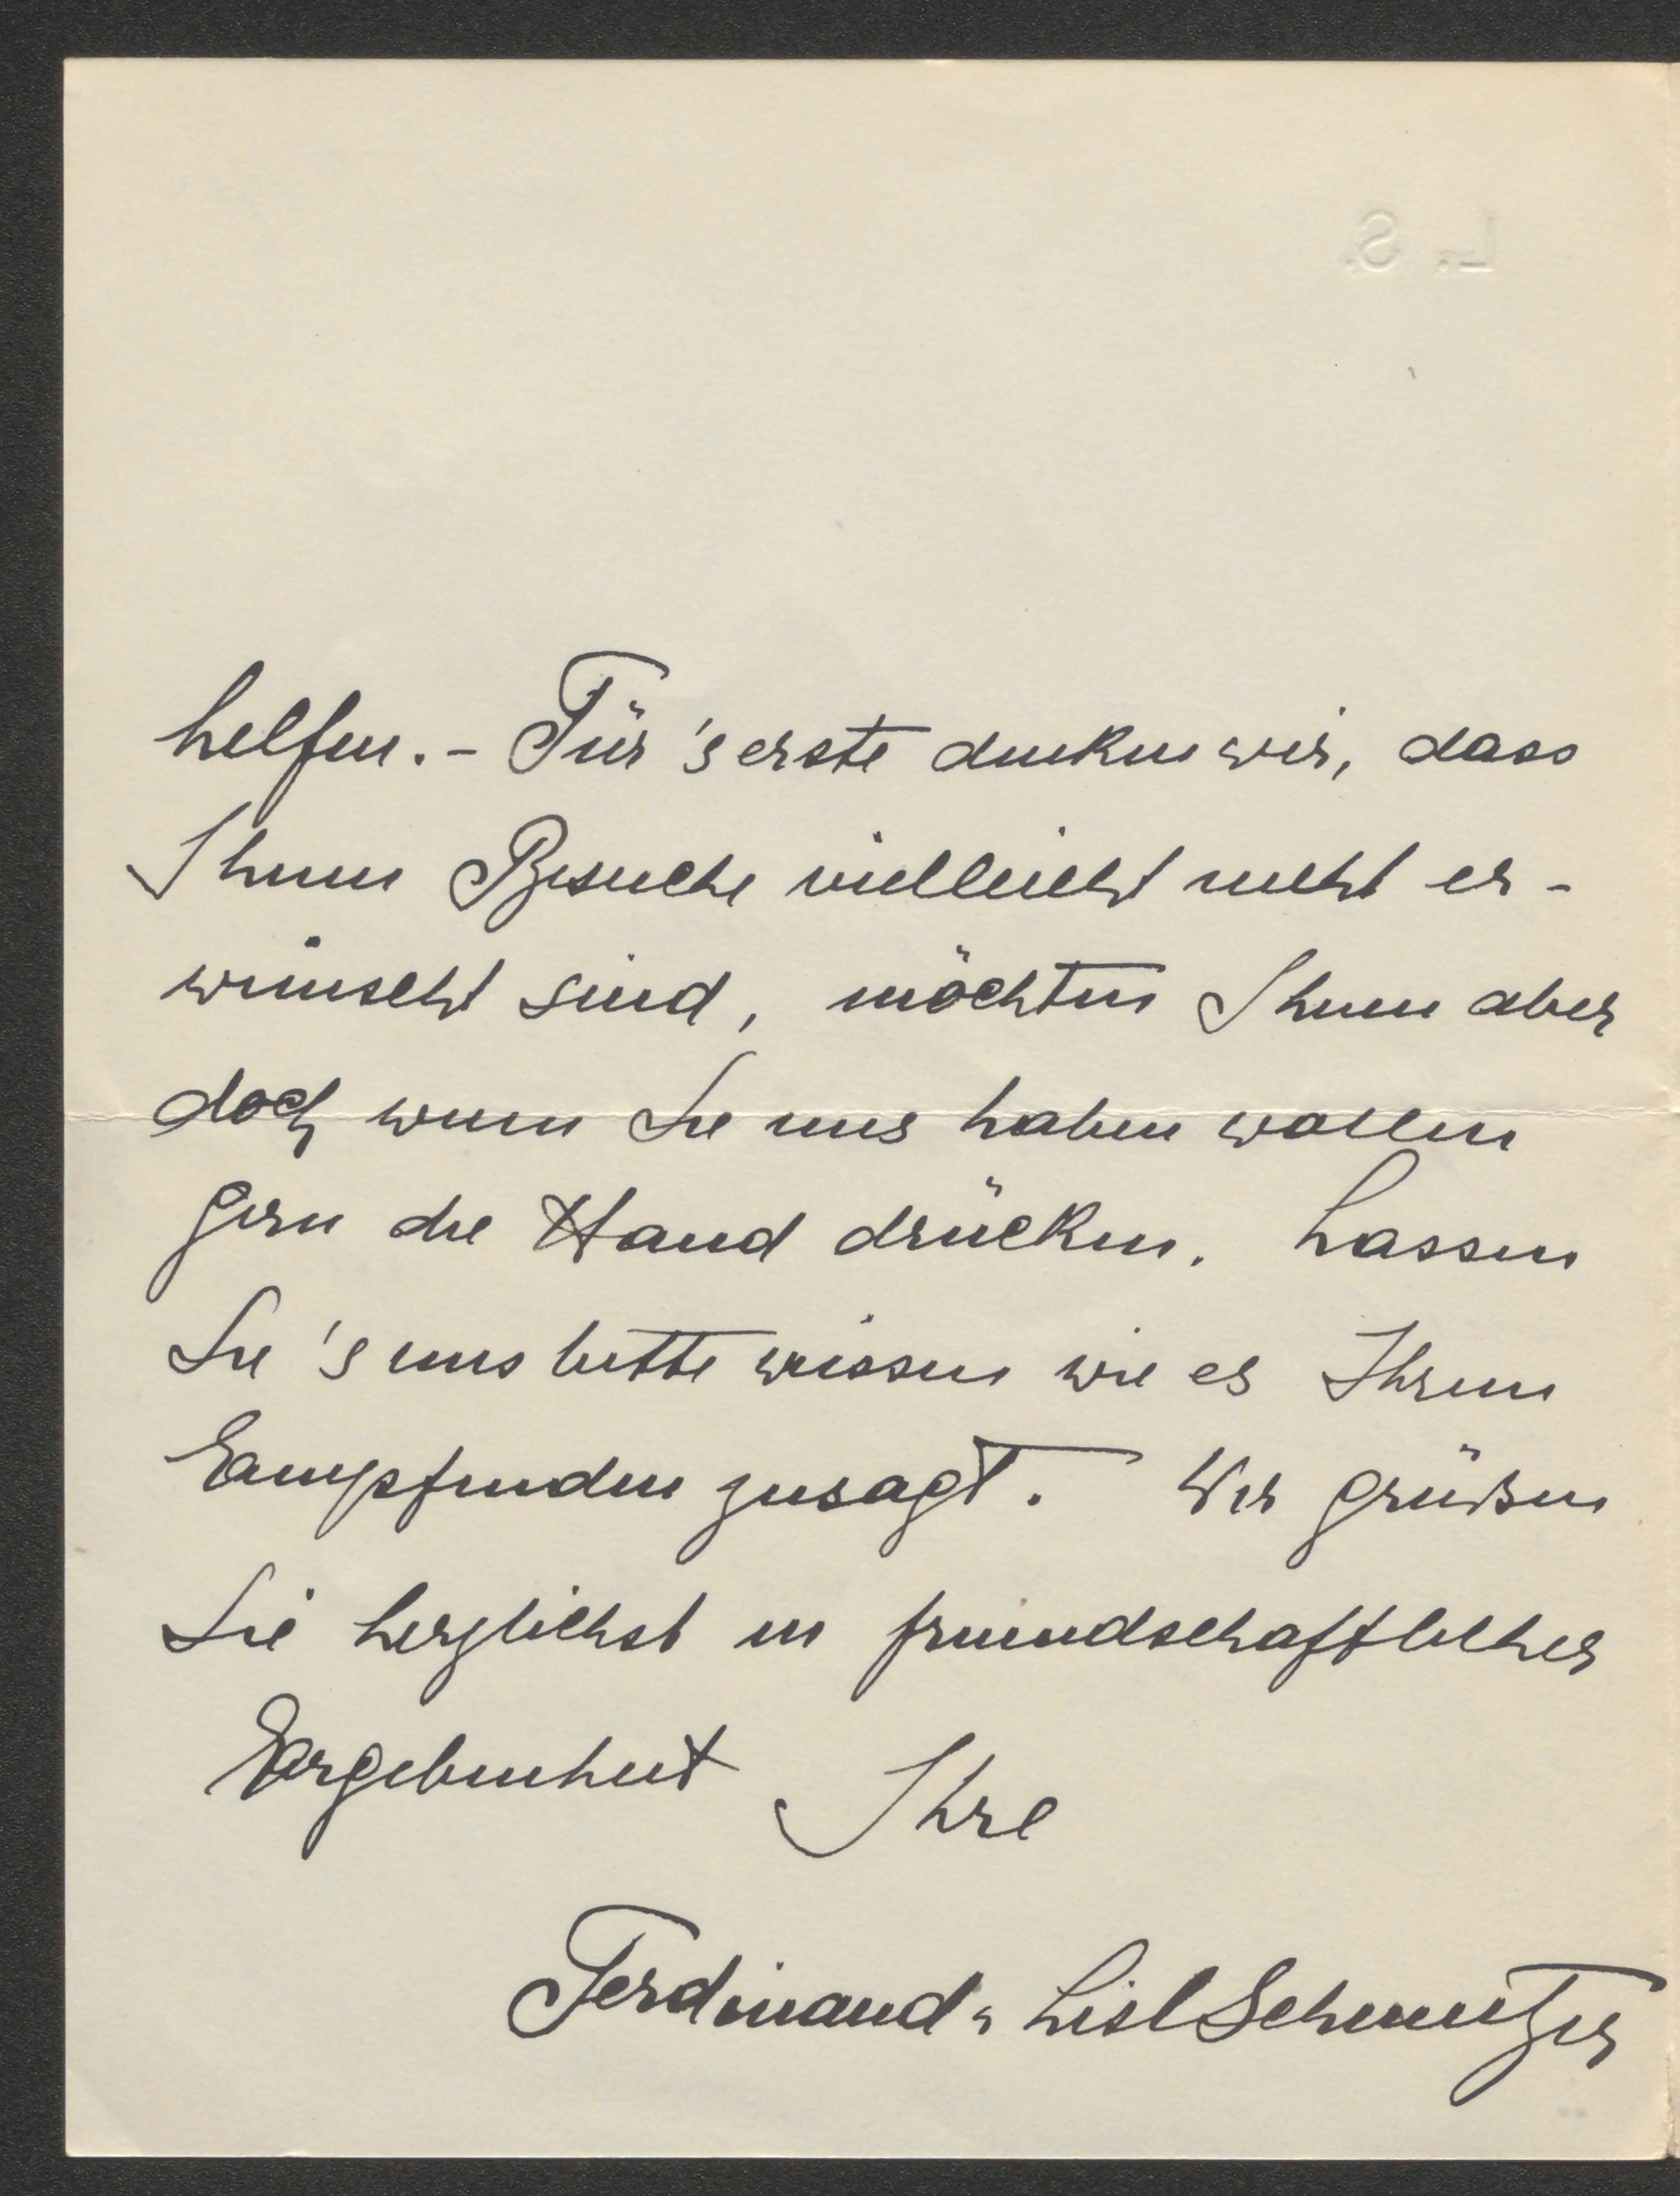 L. S.
helfen. - Für's erste denken wir, dass
Ihnen Besuche vielleicht nicht er-
wünscht sind, möchten Ihnen aber
doch wenn Sie uns haben wollen
gern die Hand drücken. Lassen
Sie's uns bitte wissen wie es Ihrem
Empfinden zusagt. Wir grüßen
Sie herzlichst in freundschaftlicher
Ergebenheit Ihre
Ferdinand u Lisl Schmutzer